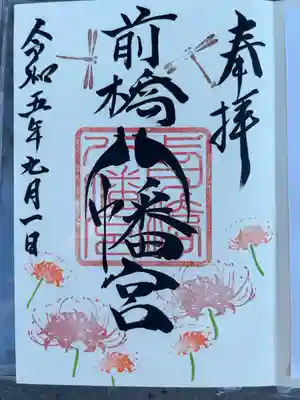 奉拝
前橋八幡宮
令和五年九月一日